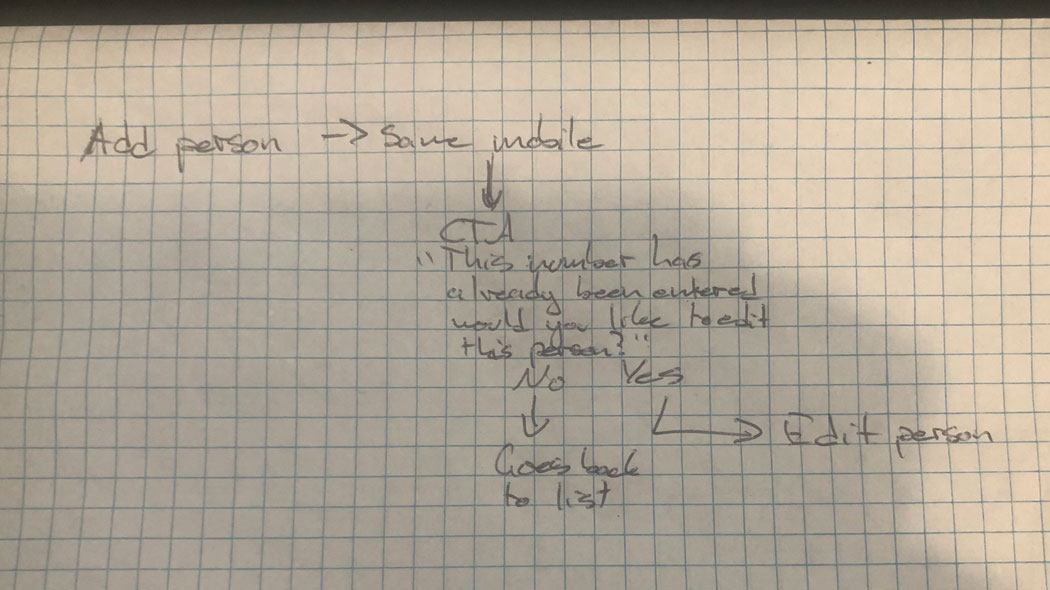 Add person -> Same mobile
CTA
"This number has
already been entered
would you like to edit
this person?"
No Yes
Edit person
Goes back
to list